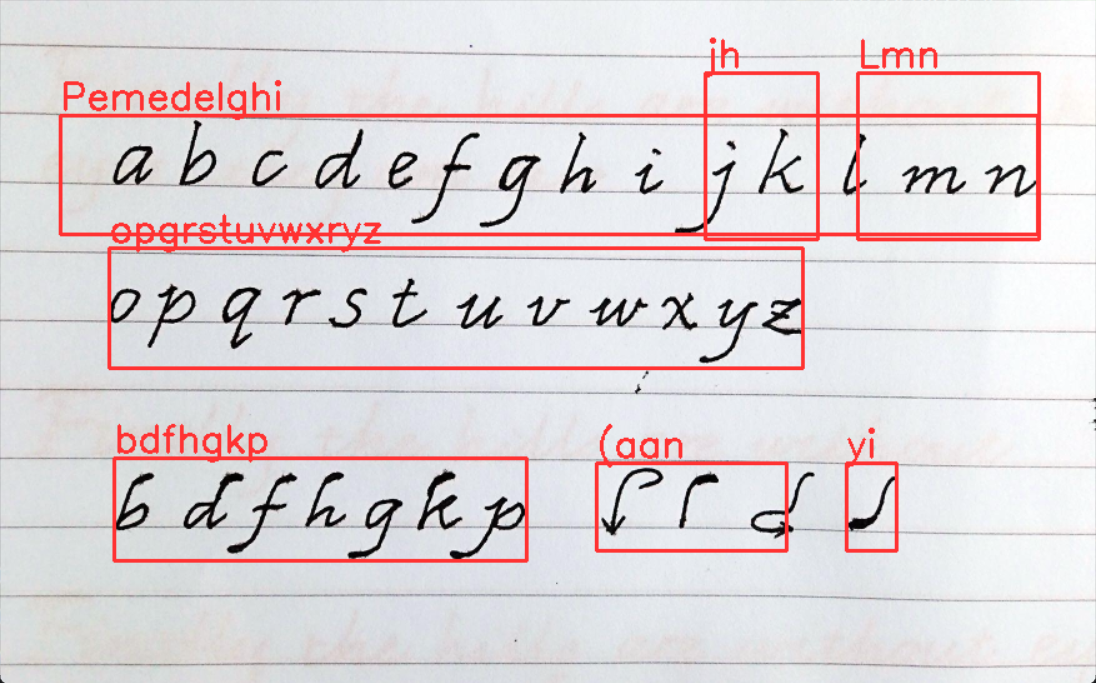 Pemedelghi jh Lmn
a b c d e f g h i j k l m n
opgrstuvwxryz
o p q r s t u v w x y z
bdfhgkp (aan yi
b d f h g k p